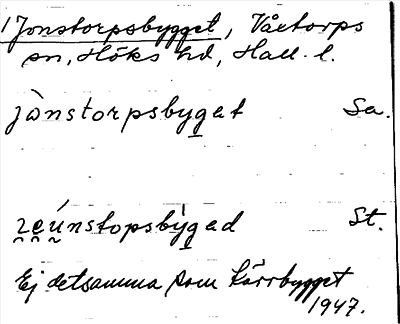 1 Jonstorpsbygget, Våxtorps
sn, Höks hd, Hall. l.
jònstorpsbyget Sa.
reúnstopsbýgad St.
Ej detsamma som Kärrbygget
1947.